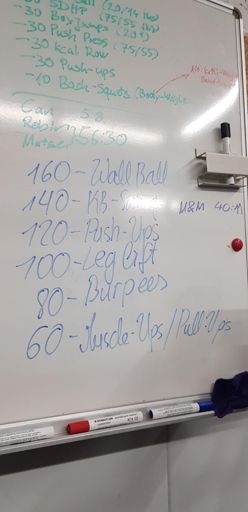 Ball (20/14 lbs)
-30 SDHP (75/55 lbs)
-30 Box Jumps (20")
-30 Push Press (75/55)
-30 Kcal Row
-30 Push-ups
-10 Back-Squats (Body-Weight)
Can 58
56:30
160-Wall Ball
140-KB-
M&M 40:11
120-Push-Ups
100-Leg Lift
80-Burpees
60-Muscle-Ups/Pull-Ups